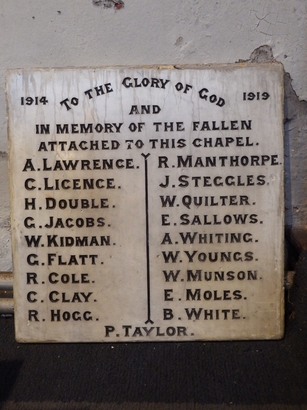 1914 TO THE GLORY OF GOD 1919
AND
IN MEMORY OF THE FALLEN
ATTACHED TO THIS CHAPEL.
A. LAWRENCE.
C. LICENCE.
H. DOUBLE.
G. JACOBS.
W. KIDMAN.
G. FLATT.
R. COLE.
C. CLAY.
R. HOGG.
R. MANTHORPE.
J. STEGGLES.
W. QUILTER.
E. SALLOWS.
A. WHITING.
W. YOUNGS.
W. MUNSON.
E. MOLES.
B. WHITE.
P. TAYLOR.